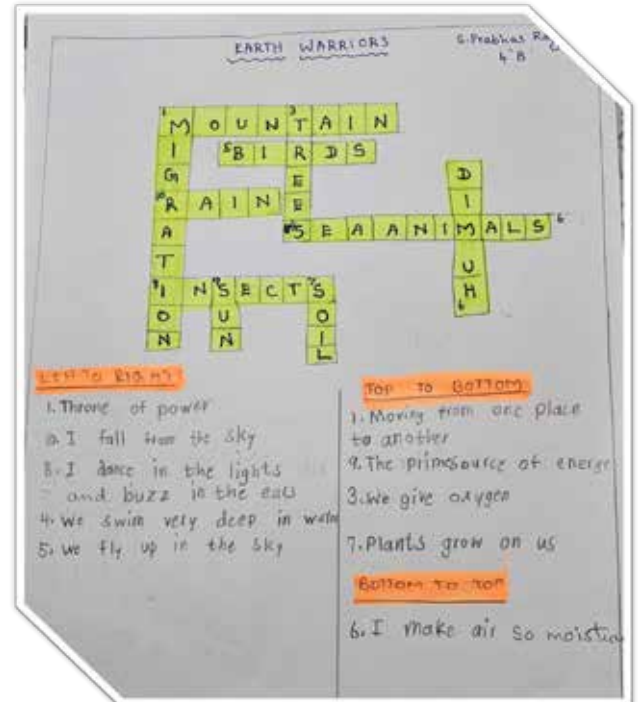 EARTH WARRIORS
G.Prabhas
4 B
MOUNTAIN
BIRDS
RAIN
SEAANIMALS
INSECTS
MIGRATION
TREES
DIMUH
SUN
SOIL
LEFT TO RIGHT
1. Throne of power
2. I fall from the sky
3. I dance in the lights
and buzz in the ears
4. We swim very deep in water
5. We fly up in the sky
TOP TO BOTTOM
1. Moving from one place
to another
9. The prime source of energy
3. We give oxygen
7. Plants grow on us
BOTTOM TO TOP
6. I make air so